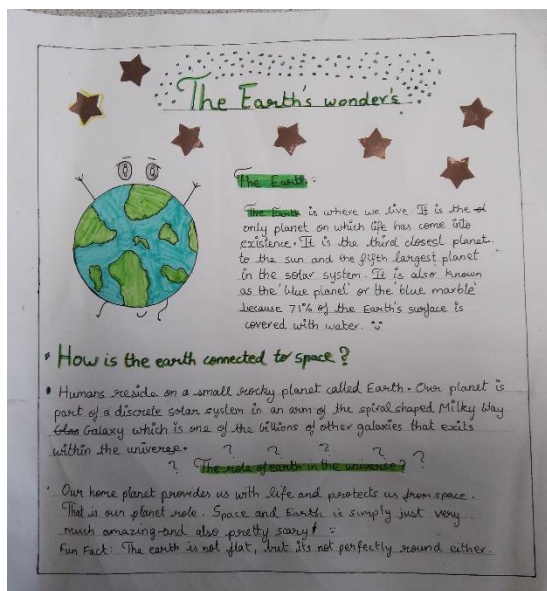 The Earth's wonder's
The Earth:
The Earth is where we live. It is the
only planet on which life has come into
existence. It is the third closest planet
to the sun and the fifth largest planet
in the solar system. It is also known
as the 'blue planet' or the 'blue marble'
because 71% of the Earth's surface is
covered with water.
How is the earth connected to space?
Humans reside on a small rocky planet called Earth. Our planet is
part of a discrete solar system in an arm of the spiral shaped Milky Way
Galaxy which is one of the billions of other galaxies that exits
within the universe.
? ? ? ? ? ? ?
The role of earth in the universe?
Our home planet provides us with life and protects us from space.
That is our planet role. Space and Earth is simply just very
much amazing and also pretty scary!
Fun Fact: The earth is not flat, but its not perfectly round either.